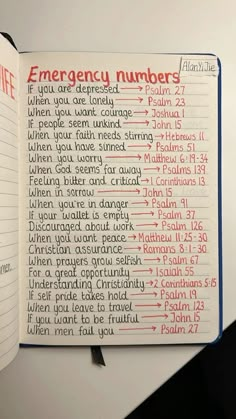 IFE
Emergency numbers
AlanYiJie
If you are depressed → Psalm 27
When you are lonely → Psalm 23
When you want courage → Joshua 1
If people seem unkind → John 15
When your faith needs stirring → Hebrews 11
When you have sinned → Psalms 51
When you worry → Matthew 6:19-34
When God seems far away → Psalms 139
Feeling bitter and critical → 1 Corinthians 13
When in sorrow → John 15
When you're in danger → Psalm 91
If your wallet is empty → Psalm 37
Discouraged about work → Psalm 126
When you want peace → Matthew 11:25-30
Christian assurance → Romans 8:1-30
When prayers grow selfish → Psalm 67
For a great opportunity → Isaiah 55
Understanding Christianity → 2 Corinthians 5:15
If self pride takes hold → Psalm 19
When you leave to travel → Psalm 123
If you want to be fruitful → John 15
When men fail you → Psalm 27